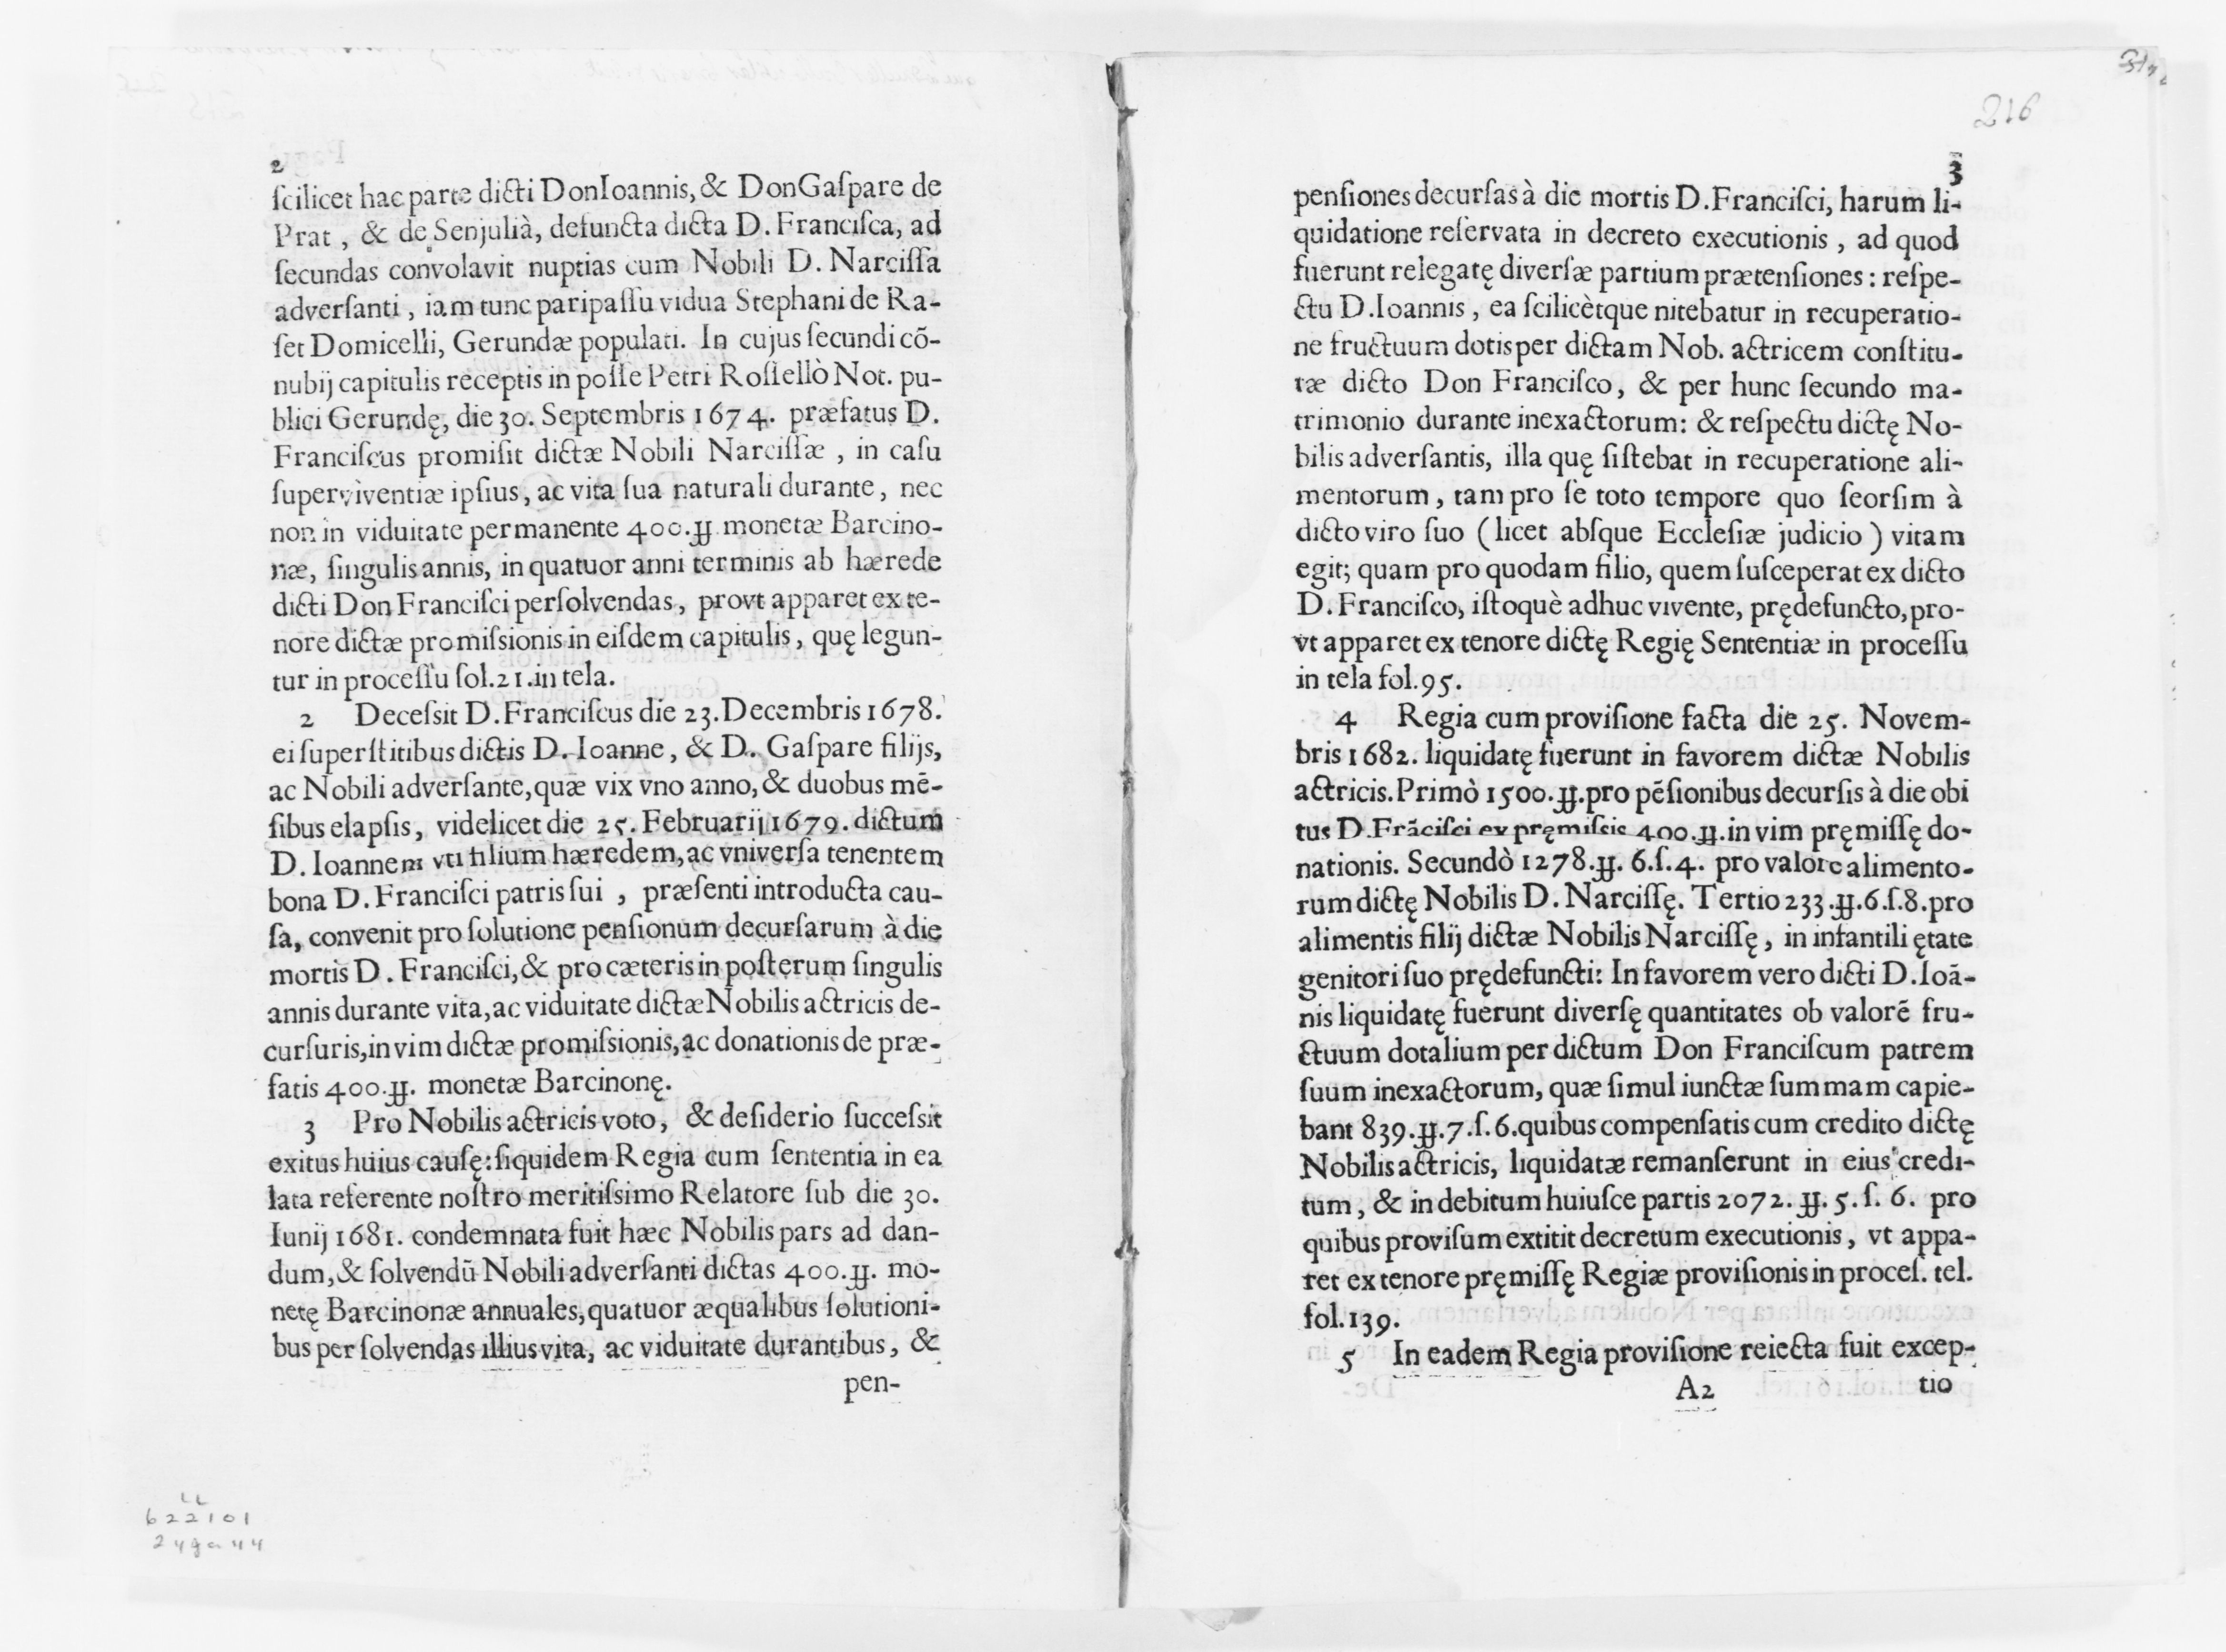 2
ſcilicet hac parte dicti DonIoannis, & DonGaſpare de
Prat, & de Senjulià, defuncta dicta D. Franciſca, ad
ſecundas convolavit nuptias cum Nobili D. Narciſſa
adverſanti, iam tunc paripaſſu vidua Stephani de Ra-
ſet Domicelli, Gerundæ populati. In cujus ſecundi cõ-
nubij capitulis receptis in poſſe Petri Roſſellò Not. pu-
blici Gerundę, die 30. Septembris 1674. præfatus D.
Franciſcus promiſit dictæ Nobili Narciſſæ, in caſu
ſuperviventiæ ipſius, ac vita ſua naturali durante, nec
non in viduitate permanente 400.ỻ monetæ Barcino-
næ, ſingulis annis, in quatuor anni terminis ab hærede
dicti Don Franciſci perſolvendas, provt apparet ex te-
nore dictæ promiſsionis in eiſdem capitulis, quę legun-
tur in proceſſu fol.21.in tela.
2 Deceſsit D. Franciſcus die 23. Decembris 1678.
ei ſuperſtitibus dictis D. Ioanne, & D. Gaſpare filijs,
ac Nobili adverſante, quæ vix vno anno, & duobus mẽ-
ſibus elapſis, videlicet die 25. Februarij 1679. dictum
D. Ioannem vti filium hæredem, ac vniverſa tenentem
bona D. Franciſci patris ſui, præſenti introducta cau-
ſa, convenit pro ſolutione penſionum decurſarum à die
mortis D. Franciſci, & pro cæteris in poſterum ſingulis
annis durante vita, ac viduitate dictæ Nobilis actricis de-
curſuris, in vim dictæ promiſsionis, ac donationis de præ-
fatis 400.ỻ. monetæ Barcinonę.
3 Pro Nobilis actricis voto, & deſiderio ſucceſsit
exitus huius cauſę: ſiquidem Regia cum ſententia in ea
lata referente noſtro meritiſsimo Relatore ſub die 30.
Iunij 1681. condemnata fuit hæc Nobilis pars ad dan-
dum, & ſolvendũ Nobili adverſanti dictas 400.ỻ. mo-
netę Barcinonæ annuales, quatuor æqualibus ſolutioni-
bus per ſolvendas illius vita, ac viduitate durantibus, &
pen-
216
3
penſiones decurſas à die mortis D. Franciſci, harum li-
quidatione reſervata in decreto executionis, ad quod
fuerunt relegatę diverſæ partium prætenſiones: reſpe-
ctu D. Ioannis, ea ſcilicètque nitebatur in recuperatio-
ne fructuum dotis per dictam Nob. actricem conſtitu-
tæ dicto Don Franciſco, & per hunc ſecundo ma-
trimonio durante inexactorum: & reſpectu dictę No-
bilis adverſantis, illa quę ſiſtebat in recuperatione ali-
mentorum, tam pro ſè toto tempore quo ſeorſim à
dicto viro ſuo (licet abſque Eccleſiæ judicio) vitam
egit; quam pro quodam filio, quem ſuſceperat ex dicto
D. Franciſco, iſtoquè adhuc vivente, prędefuncto, pro-
vt apparet ex tenore dictę Regię Sententiæ in proceſſu
in tela fol.95.
4 Regia cum proviſione facta die 25. Novem-
bris 1682. liquidatę fuerunt in favorem dictæ Nobilis
actricis. Primò 1500.ỻ. pro pẽſionibus decurſis à die obi
tus D. Frãciſci ex pręmiſsis 400.ỻ. in vim pręmiſſę do-
nationis. Secundò 1278.ỻ. 6.ſ.4. pro valore alimento-
rum dictę Nobilis D. Narciſſę. Tertio 233.ỻ.6.ſ.8. pro
alimentis filij dictæ Nobilis Narciſſę, in infantili ętate
genitori ſuo prędefuncti: In favorem vero dicti D. Ioã-
nis liquidatę fuerunt diverſę quantitates ob valorẽ fru-
ctuum dotalium per dictum Don Franciſcum patrem
ſuum inexactorum, quæ ſimul iunctæ ſummam capie-
bant 839.ỻ.7.ſ.6. quibus compenſatis cum credito dictę
Nobilis actricis, liquidatæ remanſerunt in eius credi-
tum, & in debitum huiuſce partis 2072.ỻ. 5. ſ. 6. pro
quibus proviſum extitit decretum executionis, vt appa-
ret ex tenore pręmiſſę Regiæ proviſionis in proceſ. tel.
fol.139.
5 In eadem Regia proviſione reiecta fuit excep-
A2
tio
622101